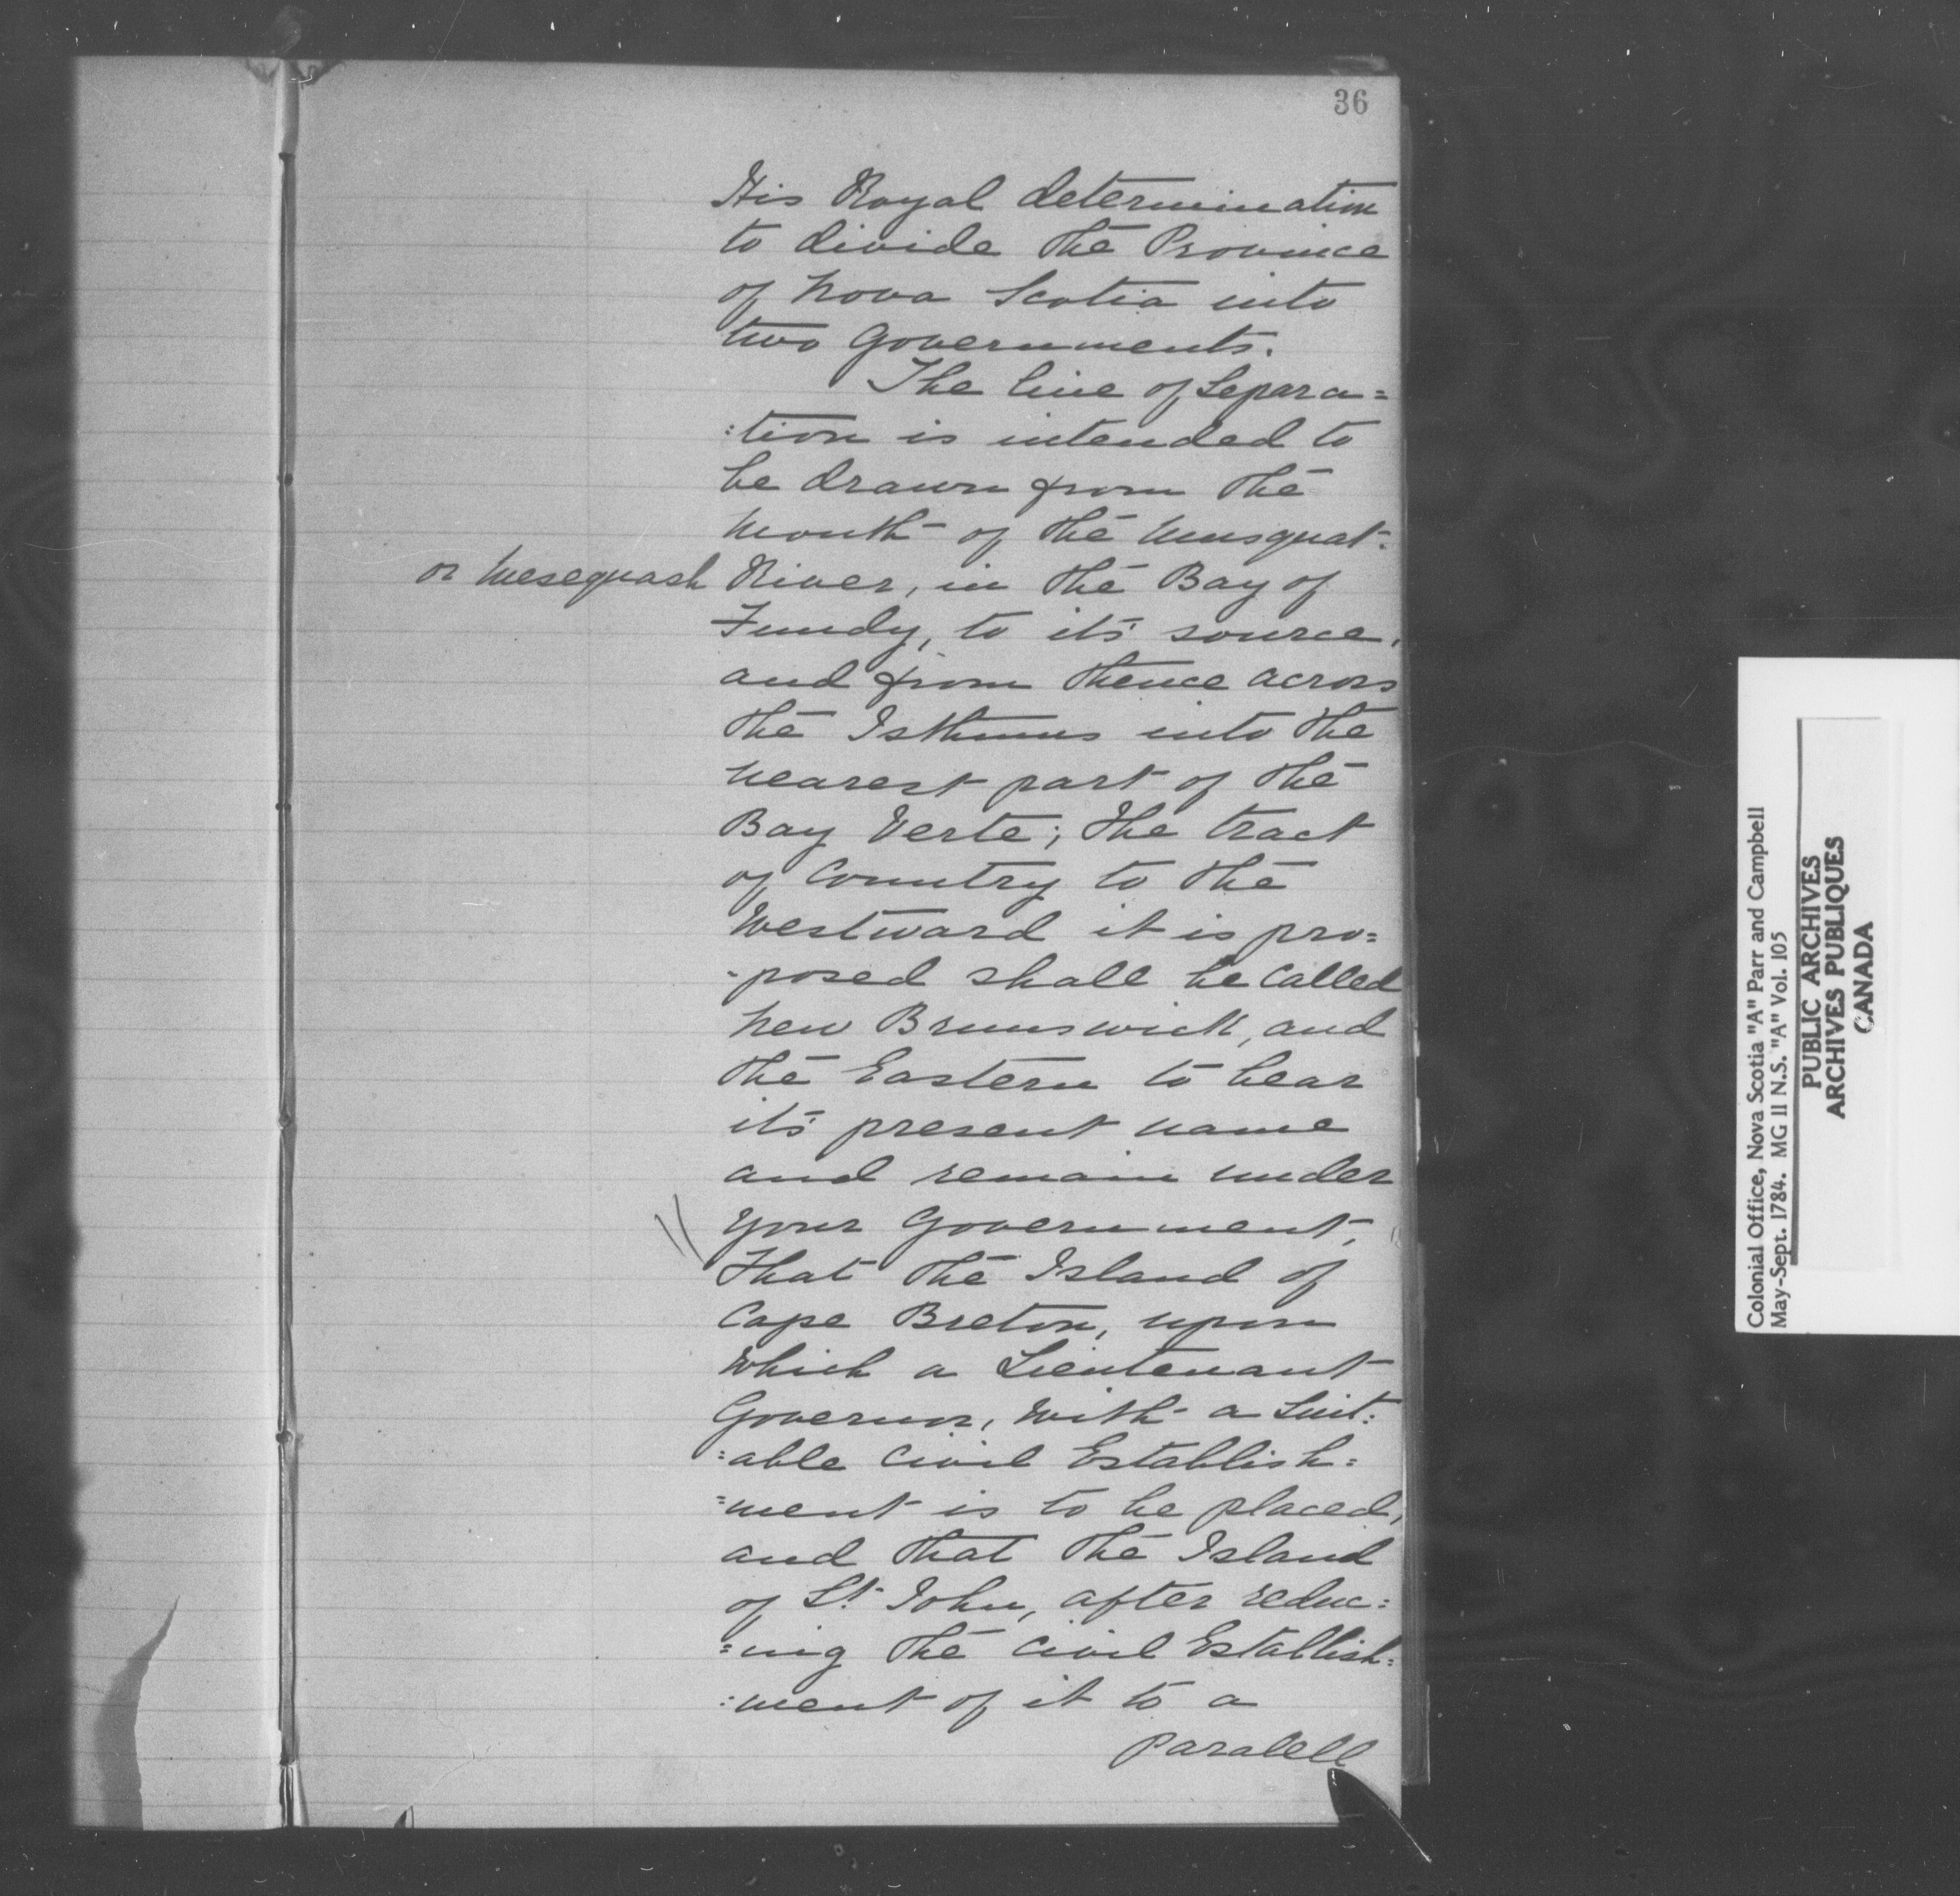 36
His Royal determination
to divide the Province
of Nova Scotia into
two Governments.
The line of Separa=
:tion is intended to
be drawn from the
Mouth of the Musquat:
or Mesequash River, in the Bay of
Fundy, to it's source,
and from thence across
the Isthmus into the
nearest part of the
Bay Verte; the tract
of Country to the
Westward it is pro=
-posed shall be called
New Brunswick, and
the Eastern to bear
it's present name
and remain under
your Government,
That the Island of
Cape Breton, upon
which a Lieutenant
Governor, with a Suit:
:able Civil Establish:
=ment is to be placed,
and that the Island
of St John, after reduc:
:ing the Civil Establish:
:ment of it to a
Paralell
Colonial Office, Nova Scotia "A" Parr and Campbell
May-Sept. 1784. MG 11 N.S. "A" Vol. 105
PUBLIC ARCHIVES
ARCHIVES PUBLIQUES
CANADA